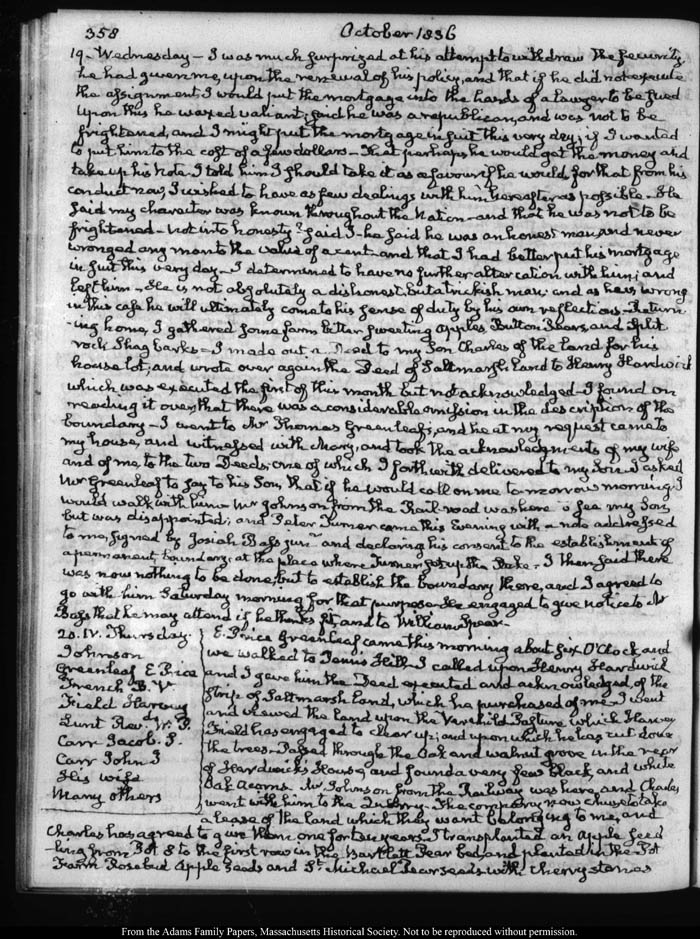 358 October 1836
19. Wednesday – I was much surprized at his attempt to withdraw the security
he had given me, upon the renewal of his policy, and that if he did not execute
the assignment I would put the mortgage into the hands of a lawyer to be sued
Upon this he waxed valiant; said he was a republican, and was not to be
frightened, and I might put the mortgage in suit this very day; if I wanted
to put him to the cost of a few dollars – That perhaps he would get the money and
take up his Note I told him I should take it as a favour if he would, for that from his
conduct now, I wished to have as few dealings with him hereafter as possible – He
said my character was known throughout the Nation – and that he was not to be
frightened – Not into honesty? said I – he said he was an honest man and never
wronged any man to the value of a cent – and that I had better put his mortgage
in suit this very day – I determined to have no further altercation with him; and
left him – He is not absolutely a dishonest, but a trickish man; and as he is wrong
in this case he will ultimately come to his sense of duty by his own reflections – Return-
ing home, I gathered some farm better sweeting Apples, Button Pears, and Split
rock Shagbarks – I made out a Deed to my Son Charles of the land for his
house lot; and wrote over again the Deed of Saltmarsh land to Henry Hardwick
which was executed the first of this month but not acknowledged – I found on
reading it over, that there was a considerable omission in the description of the
boundary – I went to Mr Thomas Greenleaf's, and he at my request came to
my house, and witnessed with Mary, and took the acknowledgments of my wife
and of me to the two Deeds; one of which I forthwith delivered to my Son I asked
Mr Greenleaf to say to his Son, that if he would call on me to-morrow morning I
would walk with him Mr Johnson from the Rail-road was here to see my Son,
but was disappointed; and Peter Turner came this Evening with a note addressed
to me, signed by Josiah Bass junr and declaring his consent to the establishment of
a permanent boundary at the place where Turner set up the Stake – I then said there
was now nothing to be done, but to establish the boundary there, and I agreed to
go with him Saturday morning for that purpose He engaged to give notice to Mr
Bass that he may attend if he thinks fit, and to William Spear –
20. IV. Thursday.
Johnson
Greenleaf E Price
French B. V
Field Harvey
Lunt Revd W. P.
Carr Jacob. S.
Carr John J
His wife
Many others
E. Price Greenleaf came this morning about six O'Clock, and
we walked to Penn's Hill – I called upon Henry Hardwick
and I gave him the Deed executed and acknowledged, of the
strip of Saltmarsh land, which he purchased of me – I went
and viewed the land upon the Pasture which Harvey
Field has engaged to clear up; and upon which he has cut down
the trees – Passed through the Oak and walnut grove in the rear
of Hardwick's House, and found a very few black, and white
Oak Acorns Mr Johnson from the Railway was here, and Charles
went with him to the Quarry – The company now chuse to take
a lease of the land which they want belonging to me, and
Charles has agreed to give them one for ten years – I transplanted an Apple seed-
ling from Pot 8 to the first row in the Bartlett Pear bed, and planted in the Pot
Farm Rosebud Apple seeds and St Michael Pear seeds with cherry stones
From the Adams Family Papers, Massachusetts Historical Society. Not to be reproduced without permission.